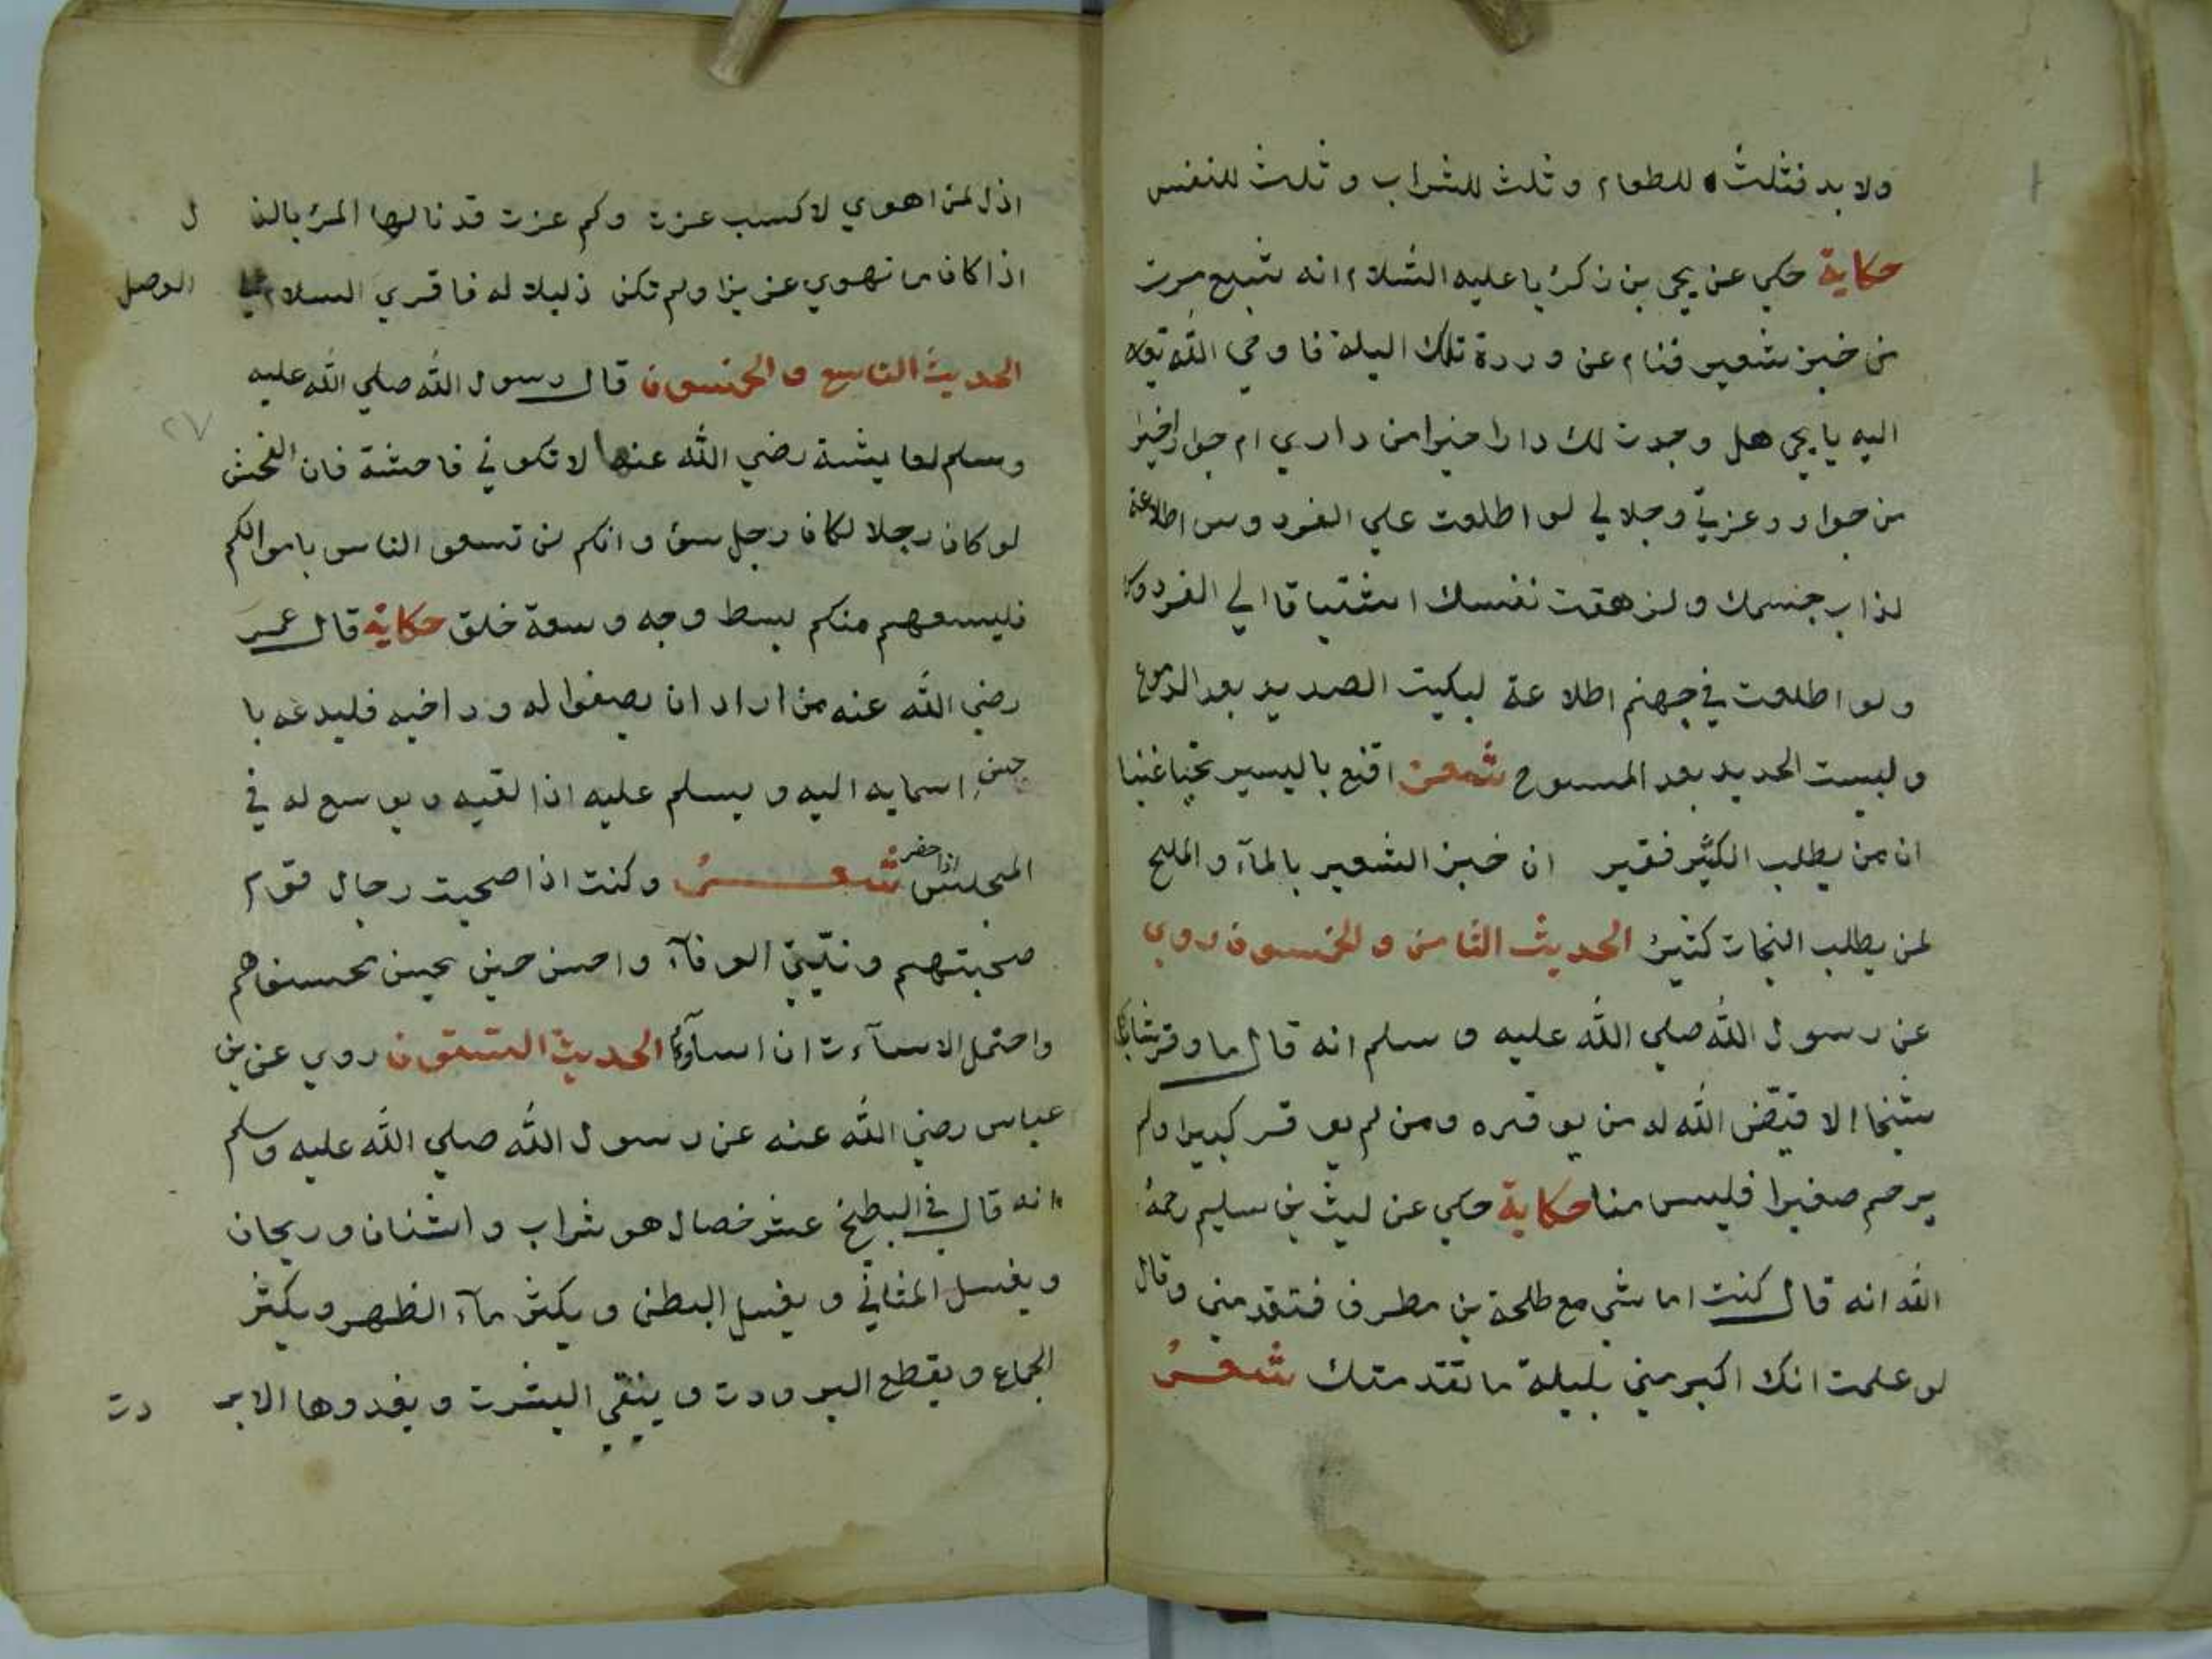 ولا بد فثلث للطعام وثلث للشراب وثلث للنفس
حكاية حكي عن يحي بن زكريا عليه السلام انه شبع مرت
من خبز شعير فنام عن وردة تلك اليلة فاوحي الله تعه
اليه يا يحي هل وجدت لك دارا خيرا من داري ام جوارا خيرا
من جوار وعزتي وجلالي لو اطلعت علي الفردوس اطلاعة
لذاب جسمك ولزهقت نفسك اشتياقا الي الفردوس
ولو اطلعت في جهنم اطلاعة لبكيت الصديد بعد الدموع
ولبست الحديد بعد المسوح شعر اقنع باليسير تحيا غنيا
ان من يطلب الكثير فقير ان خبز الشعير بالمآء والملح
لمن يطلب النجات كثير الحديث الثامن والخمسون روي
عن رسول الله صلي الله عليه و سلم انه قال ما وقر شاب
شيخا الا قيض الله له من يوقره ومن لم يوقر كبيرا ولم
يرحم صغيرا فليس منا حكاية حكي عن ليث بن سليم رحمة
الله انه قال كنت اماشي مع طلحة بن مطرف فتقدمني وقال
لو علمت انك اكبر مني بليلة ما تقدمتك شعر
اذل لمن اهوي لاكسب عزت وكم عزت قد نالها المرء بالذ ل
اذا كان ما تهوي عزيزا ولم تكن ذليلا له فاقري السلام الوصل
الحديث التاسع والخمسون قال رسول الله صلي الله عليه
وسلم لعايشة رضي الله عنها لا تكوني فاحشة فان الفحش
لو كان رجلا لكان رجل سوء وانكم لن تسعو الناس باموالكم
فليسعهم منكم بسط وجه وسعة خلق حكاية قال عمر
رضي الله عنه من اراد ان يصفوا له ود اخيه فليدعه با
اسمايه اليه ويسلم عليه اذا لقيه ويوسع له في
المجلس اذا حضر شعر وكنت اذا صحبت رجال قوم
صحبتهم ونيتي الوفآء واحسن حين يحسن محسنوهم
واحتمل الاسآءت ان اساؤ الحديث الستون روي عن بن
عباس رضي الله عنه عن رسول الله صلي الله عليه وسلم
انه قال في البطيخ عشر خصال هو شراب واشنان وريحان
ويغسل المثاني ويغسل البطن ويكثر مآء الظهر ويكثر
الجماع ويقطع البرودت وينقي البشرت ويغدوها الابر دت
٢٧